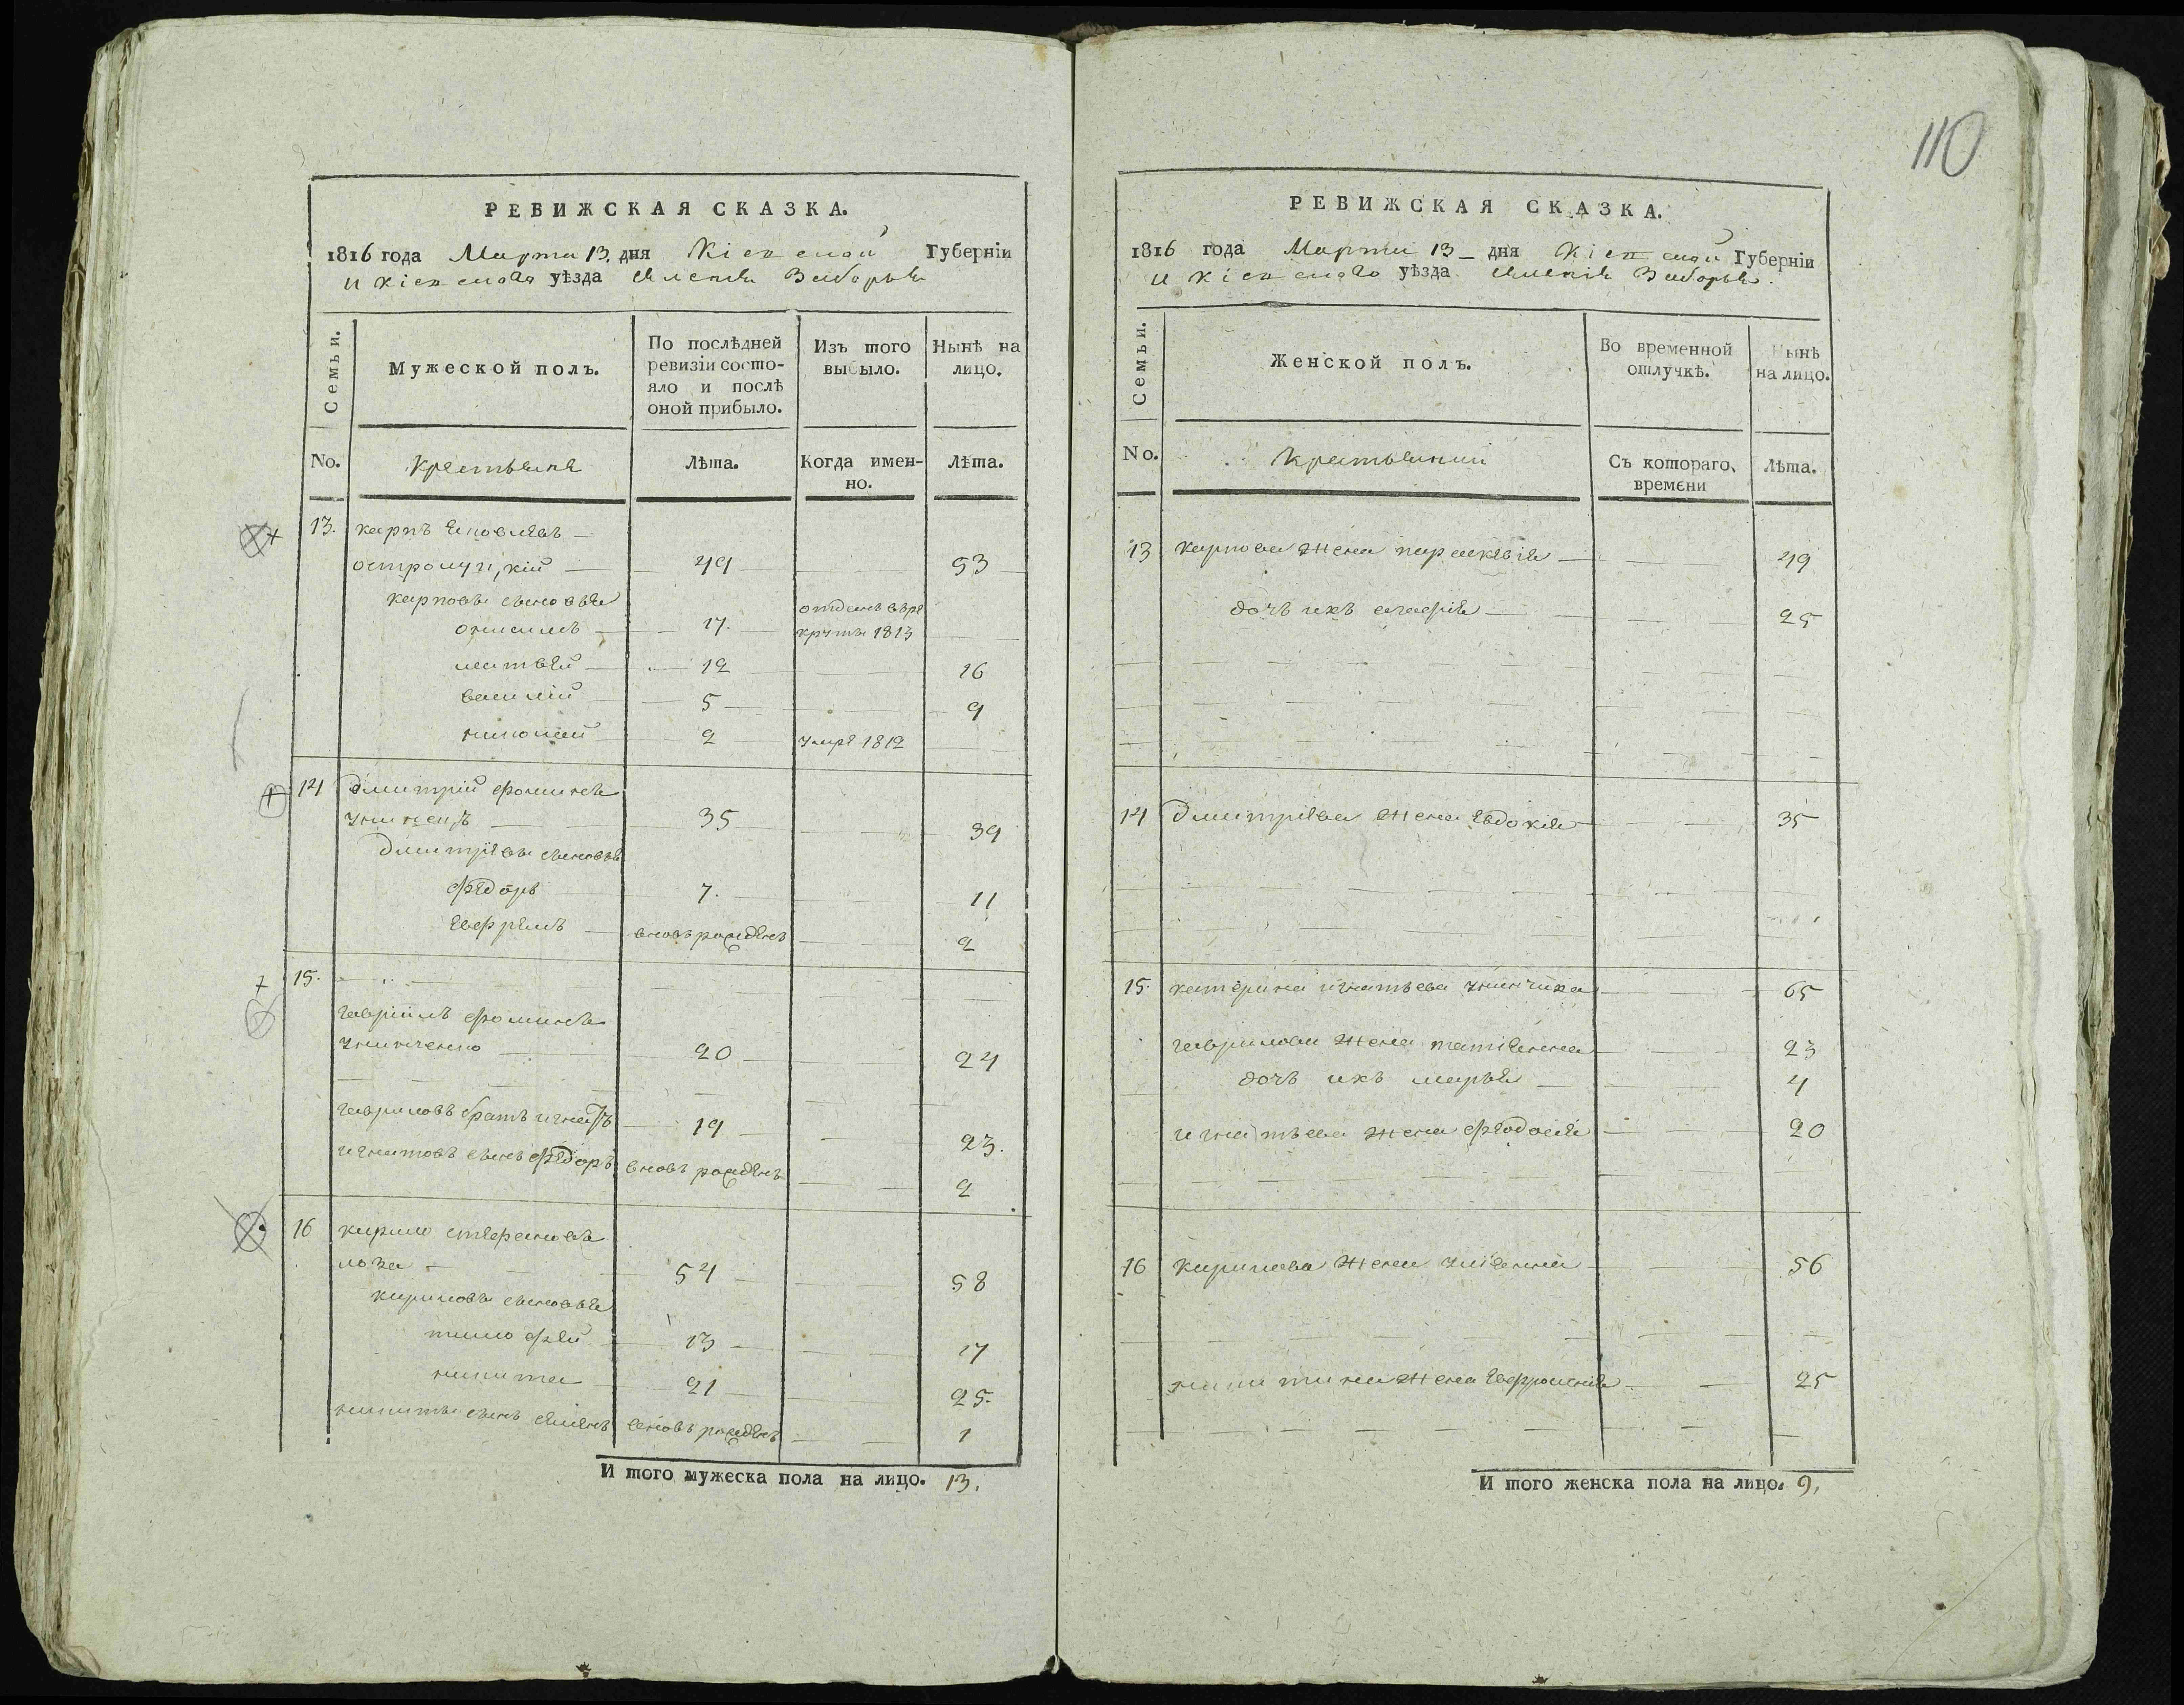 РЕВИЖСКАЯ СКАЗКА.
1816 года Марта 13. дня Кіевской Губерніи
и кіевскаго уѣзда Заборья
Семьи.
Мужеской полъ.
По послѣдней ревизіи состояло и послѣ оной прибыло.
Изъ того выбыло.
Нынѣ на лицо.
No.
крестьяне
Лѣта.
Когда именно.
Лѣта.
13. карпъ яковлевъ
49 53
карповы сыновья
онисимъ 17. отданъ въ ре
круты 1813
матвѣй 12 16
василій 5 9
николай 2 умре 1812
14 дмитрій фоминъ
35 39
дмитріевы сыновья
федоръ 7. 11
ефремъ вновь рожденъ 2
15.
гавріилъ фоминъ
униченко 20 24
гавриловъ братъ игнатъ 19 23.
игнатовъ сынъ федоръ вновь рожденъ 2
16 кирило стефановъ
лоза 54 58
кириловы сыновья
тимофей 13 17
никита 21 25.
никиты сынъ вновь рожденъ 1
И того мужеска пола на лицо. 13.
110
РЕВИЖСКАЯ СКАЗКА.
1816 года Марта 13 дня Кіевской Губерніи
и кіевскаго уѣзда Заборья.
Семьи.
Женской полъ.
Во временной отлучкѣ.
Нынѣ на лицо.
No.
крестьянки
Съ котораго времени
Лѣта.
13 карпова жена параскевія 49
дочь ихъ агафія 25
14 дмитріева жена евдокія 35
15. катерина игнатьева 65
гаврилова жена татіанна 23
дочь ихъ марья 4
игнатьева жена феодосія 20
16 кирилова жена уліанна 56
никитина жена ефросинія 25
И того женска пола на лицо. 9.